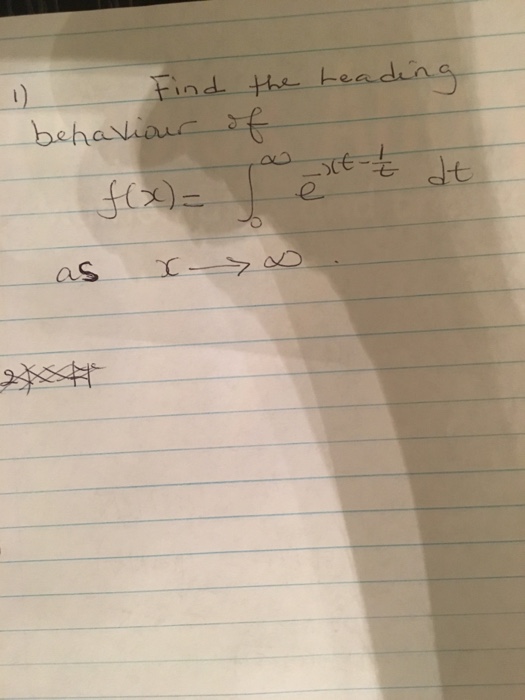 1) Find the Leading
behaviour of
f(x) = ∫₀^∞ e^{-xt - 1/t} dt
as x → ∞ .